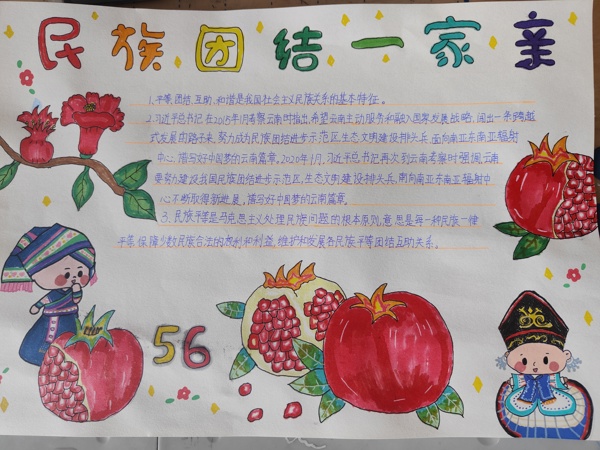 民族团结一家亲
1.平等,团结,互助,和谐是我国社会主义民族关系的基本特征。
2.习近平总书记在2015年1月考察云南时指出,希望云南主动服务和融入国家发展战略,闯出一条跨越
式发展的路子来,努力成为民族团结进步示范区,生态文明建设排头兵,面向南亚东南亚辐射
中心,谱写好中国梦的云南篇章,2020年1月,习近平总书记再次到云南考察时强调,云南
要努力建设我国民族团结进步示范区,生态文明建设排头兵,面向南亚东南亚辐射中
心不断取得新进展,谱写好中国梦的云南篇章。
3.民族平等是马克思主义处理民族问题的根本原则,意思是每一种民族一律
平等,保障少数民族合法的权利和利益,维护和发展各民族平等团结互助关系。
56